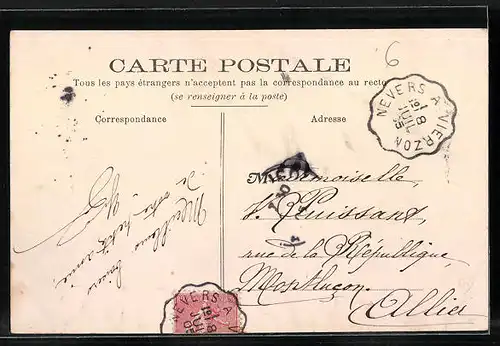 CARTE POSTALE
Tous les pays étrangers n'acceptent pas la correspondance au recto
(se renseigner à la poste)
Correspondance
Adresse
6
NEVERS A VIERZON
18
JUIL
05
Meilleurs
de votre petite amie
Mademoiselle,
Puissant,
rue de la République,
Montluçon.
Allier
NEVERS A
18
JUIL